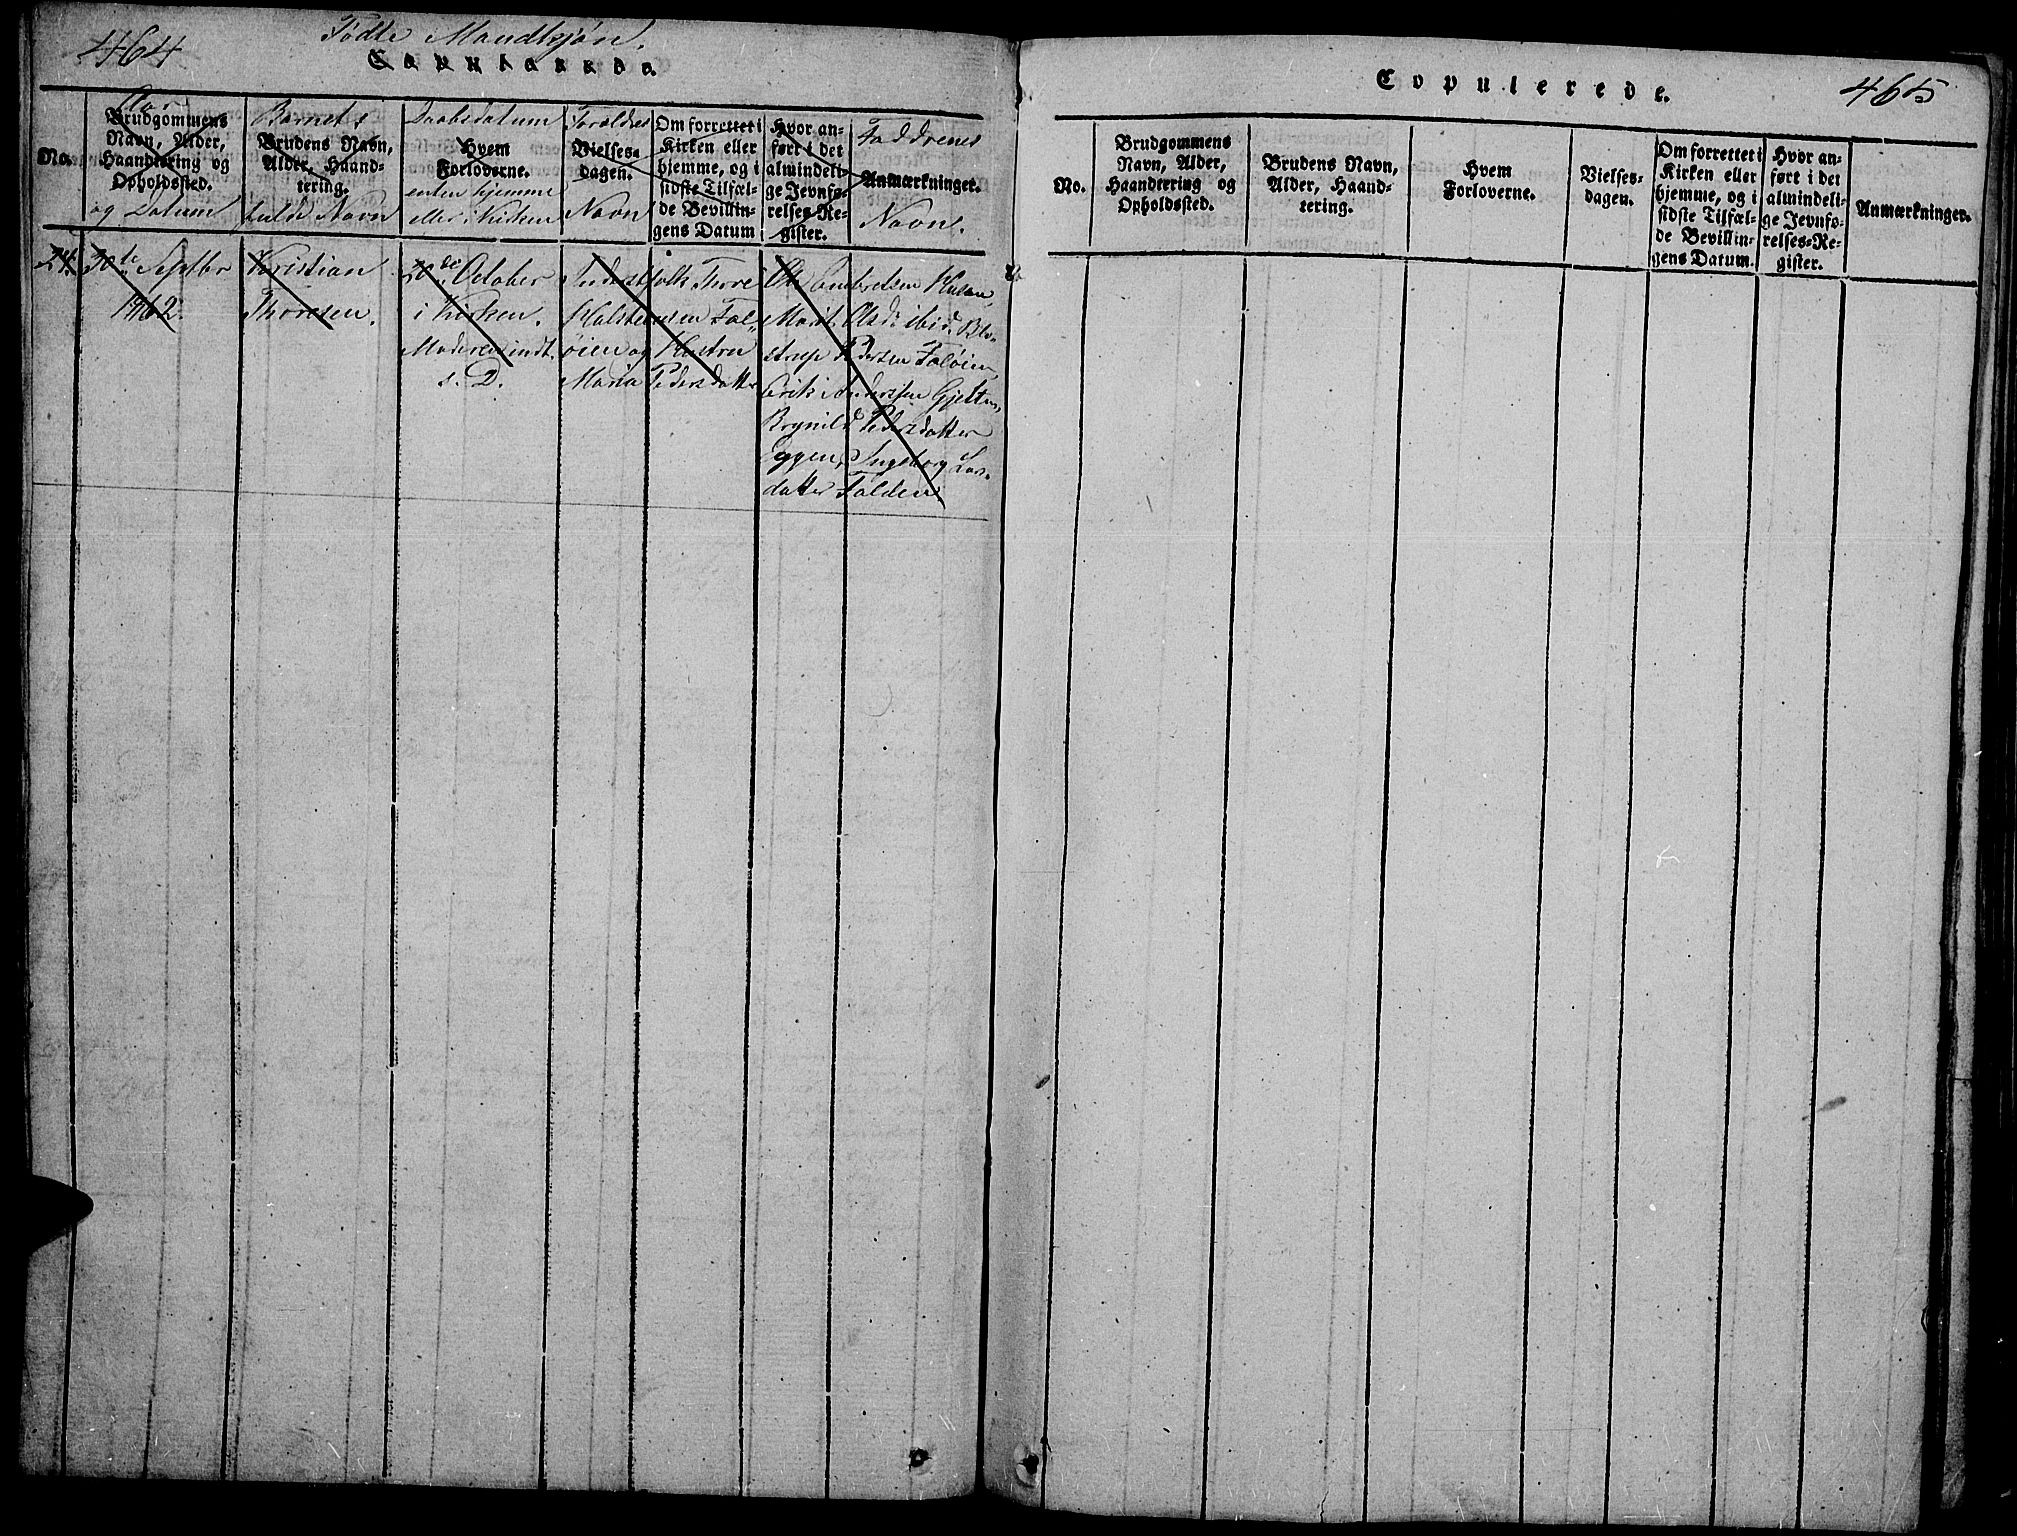 464
Fødte Mandkjøn.
Copulerede.
No.
Aar
Brudgommens
Navn, Alder,
Haandtering og
Opholdssted.
og Datum
Barnets
Brudens Navn,
Alder, Haand-
tering.
fulde Navn
Daabsdatum
Hvem
Forloverne.
enten hjemme
eller i Kirken
Forældres
Vielses-
dagen.
Navn
Om forrettet i
Kirken eller
hjemme, og i
sidste Tilfæl-
de Bevillin-
gens Datum
Hvor an-
ført i det
almindeli-
ge Jevnfø-
relses-Re-
gister.
Faddrenes
Anmærkninger.
Navn.
24.
30te Septbr
1862.
Kristian
Thoresen.
20de October
i Kirken.
Moderen indt.
s. D.
Inderstfolk Thore
Halstensen Fal-
øien og Kustru
Maria Pedersdatter
Ole Embretsen
Marit Olsd. ibid.
Pedersen Faløien,
Erik Andersen
Pedersdatter
Eggen, Ingeborg Lars-
datter Falden.
Copulerede.
465
No.
Brudgommens
Navn, Alder,
Haandtering og
Opholdssted.
Brudens Navn,
Alder, Haand-
tering.
Hvem
Forloverne.
Vielses-
dagen.
Om forrettet i
Kirken eller
hjemme, og i
sidste Tilfæl-
de Bevillin-
gens Datum.
Hvor an-
ført i det
almindeli-
ge Jevnfø-
relses-Re-
gister.
Anmærkninger.